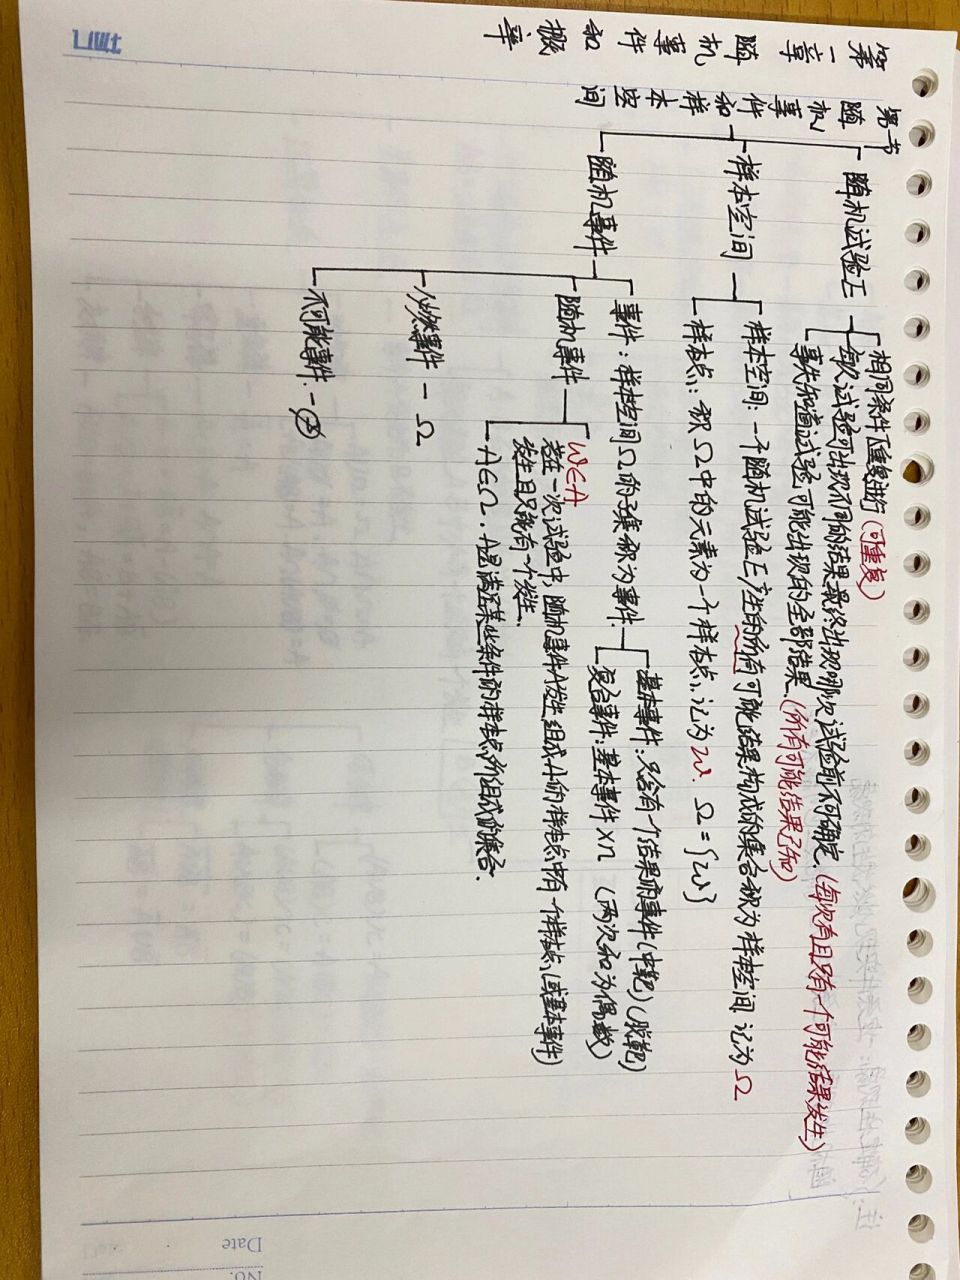 第一章 随机事件和概率
第一节 随机事件和样本空间
随机试验E
相同条件下重复进行(可重复)
每次试验可出现不同的结果最终出现哪次试验前不可确定.(每次有且只有一个可能结果发生)
事先知道试验可能出现的全部结果.(所有可能结果已知)
样本空间
样本空间:一个随机试验E产生的所有可能结果构成的集合称为样本空间 记为Ω
样本点:称Ω中的元素为一个样本点,记为ω. Ω={ω}
随机事件
事件:样本空间Ω的子集称为事件.
基本事件:只含有一个结果的事件(中靶)(脱靶)
复合事件:基本事件×n (两次和为偶数)
随机事件
ω∈A
若在一次试验中,随机事件A发生组成A的样本点中有一个样本点(或基本事件)
发生且只能有一个发生.
A∈Ω.A是满足某些条件的样本点所组成的集合.
必然事件-Ω
不可能事件.-∅
Date
No.